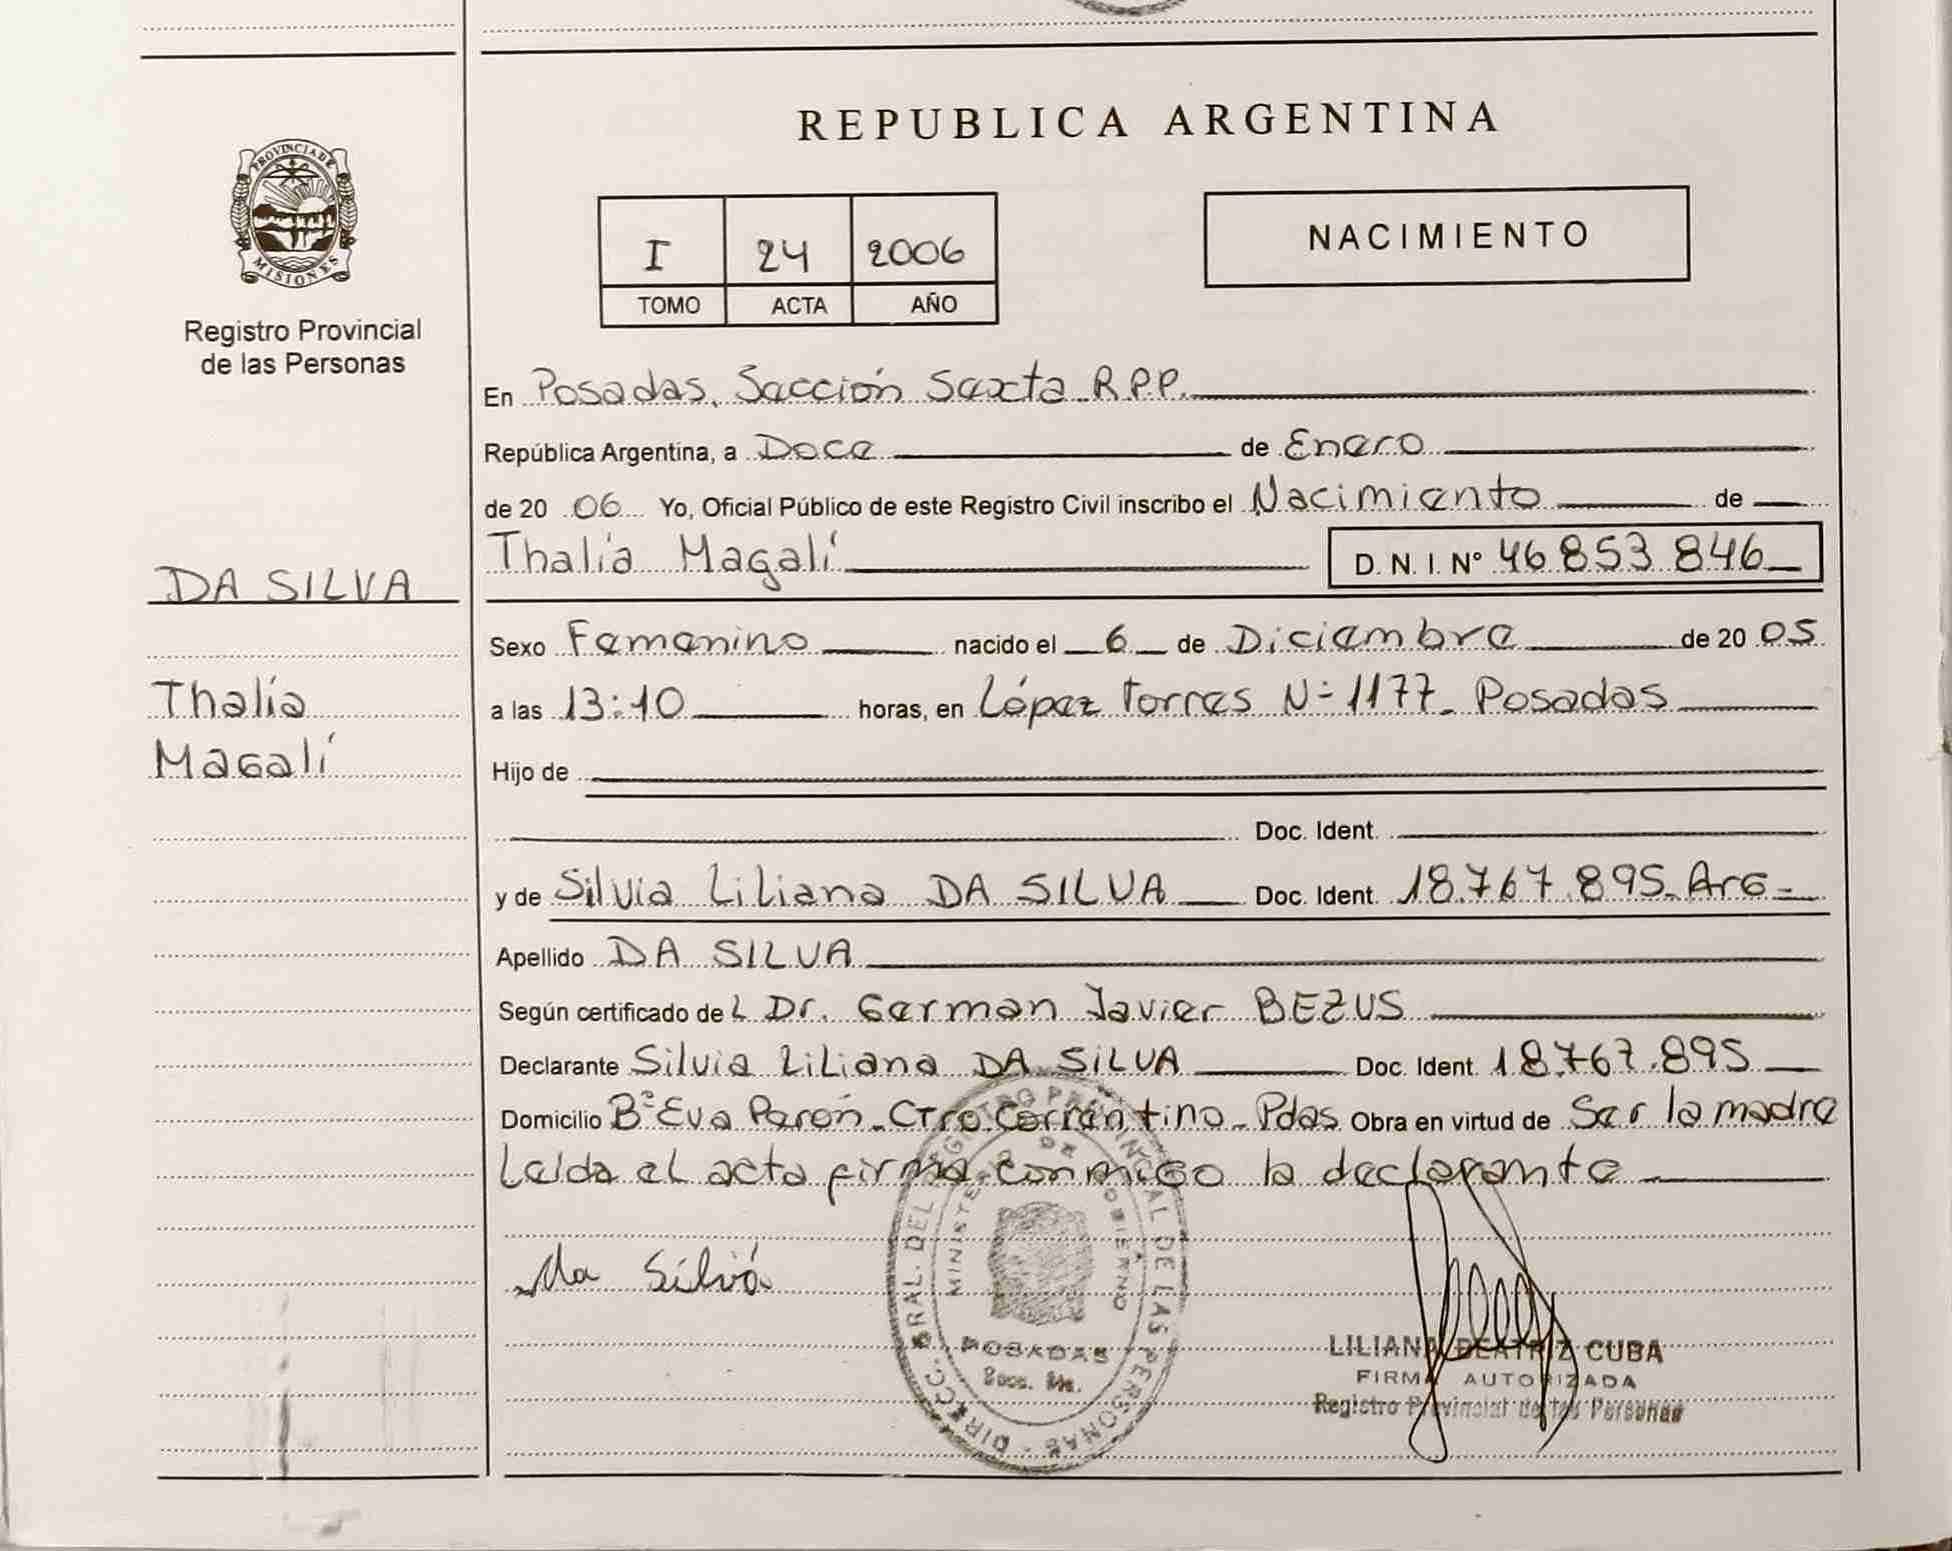 PROVINCIA DE
MISIONES
Registro Provincial
de las Personas
DA SILVA
Thalía
Magalí
REPUBLICA ARGENTINA
I 24 2006
TOMO ACTA AÑO
NACIMIENTO
En Posadas, Sección Sexta R.P.P.
República Argentina, a Doce de Enero
de 20 06 Yo, Oficial Público de este Registro Civil inscribo el Nacimiento de
Thalía Magalí D. N. I. Nº 46 853 846
Sexo Femenino nacido el 6 de Diciembre de 20 05
a las 13:10 horas, en López Torres Nº 1177 Posadas
Hijo de
Doc. Ident.
y de Silvia Liliana DA SILVA Doc. Ident. 18.767.895 Arg
Apellido DA SILVA
Según certificado del Dr. German Javier BEZUS
Declarante Silvia Liliana DA SILVA Doc. Ident. 18.767.895
Domicilio Bº Eva Perón Ctro Correntino Pdas Obra en virtud de Ser la madre
Leída el acta firma conmigo la declarante
Da Silva
DIRECC. GRAL. DEL REGISTRO PROVINCIAL DE LAS PERSONAS
MINISTERIO DE GOBIERNO
POSADAS
Secc.
LILIANA BEATRIZ CUBA
FIRMA AUTORIZADA
Registro Provincial de las Personas